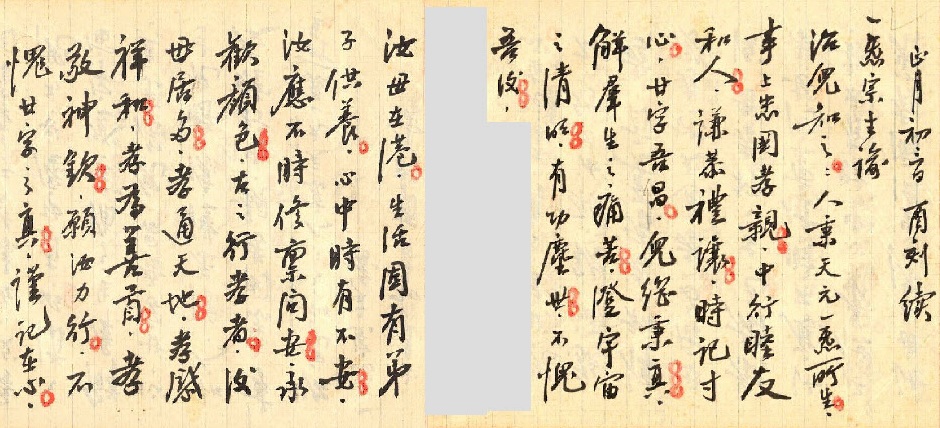 正月初三日酉刻續
一炁宗主諭
治兒知之：人秉天元一炁所生，
事上忠國孝親，中行睦友
和人，謙恭禮讓，時記寸
心，廿字吾昌，兒繼秉真，
解羣生之痛苦，澄宇宙
之清明，有功塵世，不愧
吾汝，
汝母在港，生活固有弟
子供養，心中時有不安，
汝應不時修稟問安，永
歡顏色，古之行孝者，
母居旁，孝通天地，孝感
祥和，孝為善首，孝
敬神欽，願汝力行，不
愧廿字之真，謹記在心，